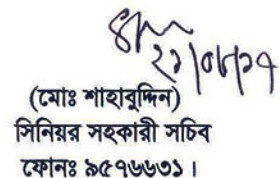 ২১/০৮/১৭
(মোঃ শাহাবুদ্দিন)
সিনিয়র সহকারী সচিব
ফোনঃ ৯৫৭৬৬৩১।